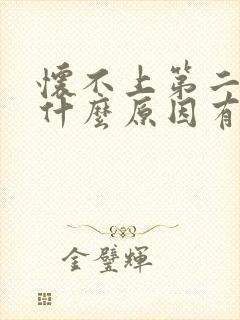 懷不上第二
什麼原因有
金璧輝